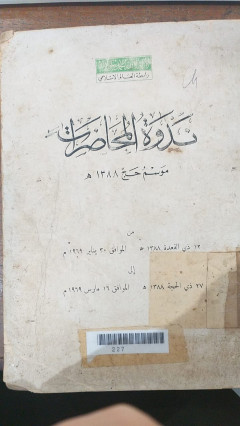 رابطة العالم الاسلامي
ندوة المحاضرات
موسم حج ١٣٨٨ هـ
من
١٢ ذي القعدة ١٣٨٨ هـ الموافق ٣٠ يناير ١٩٦٩ م
إلى
٢٧ ذي الحجة ١٣٨٨ هـ الموافق ١٦ مارس ١٩٦٩ م
227